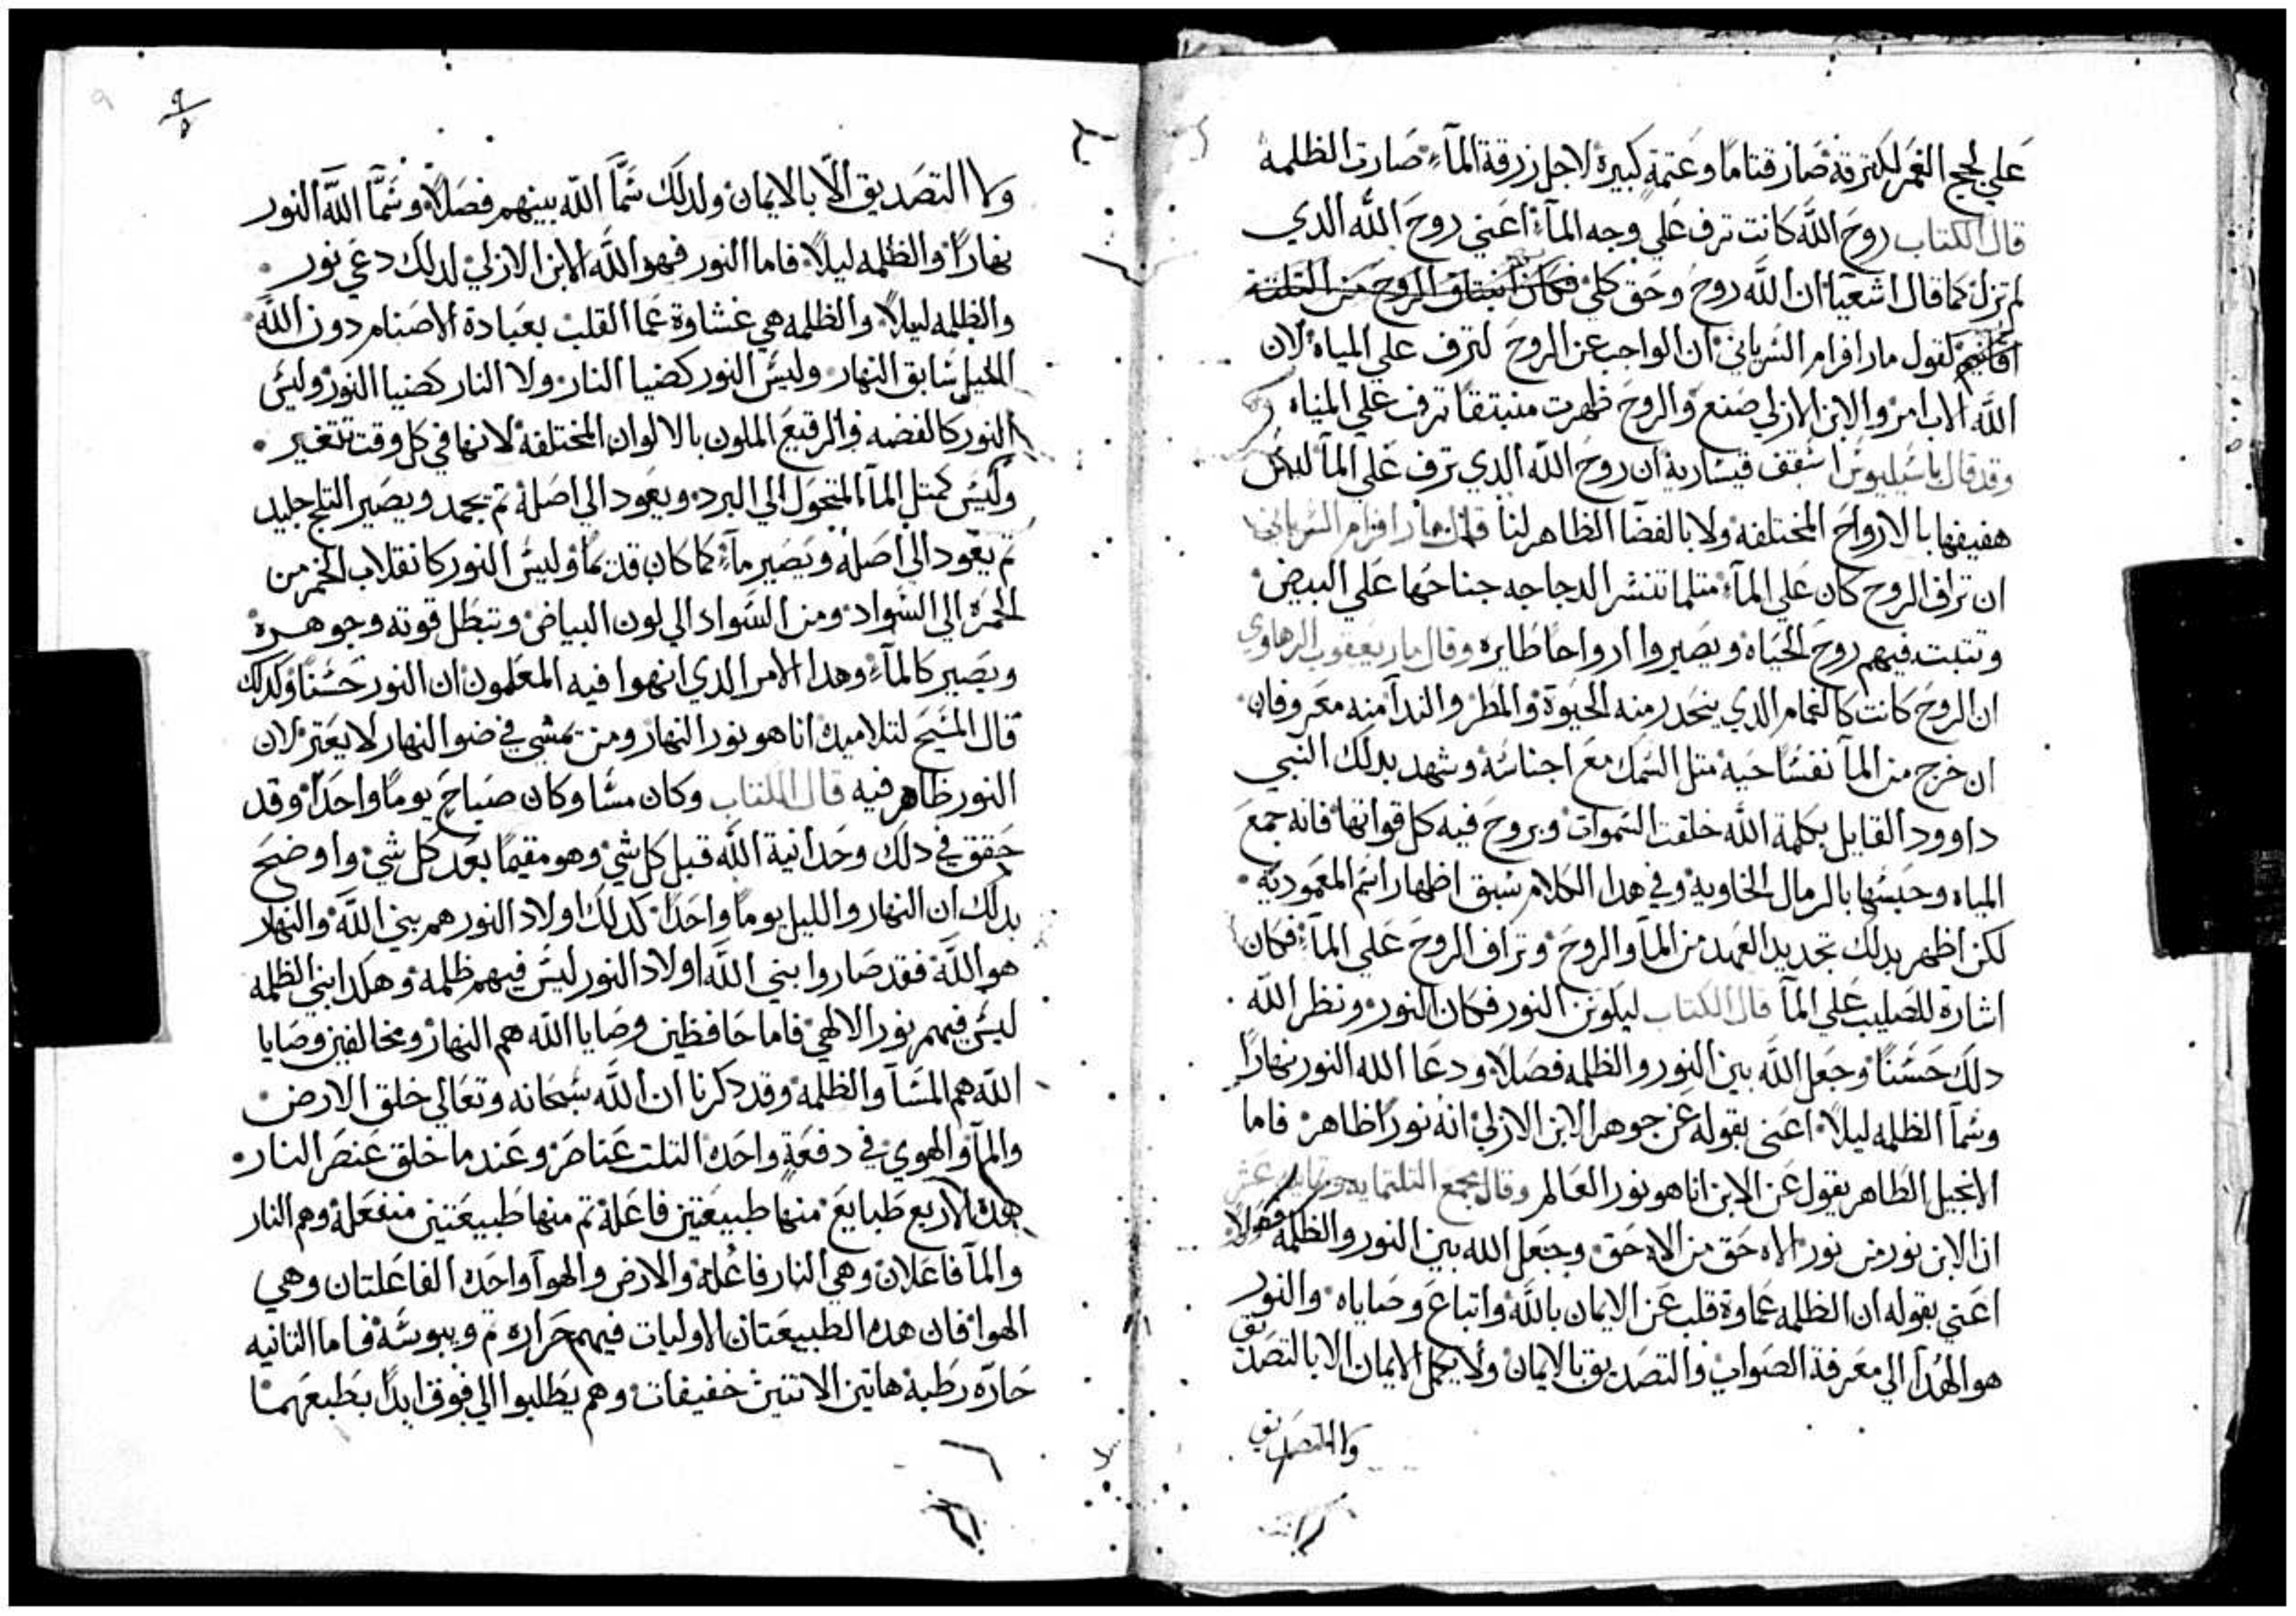 علي لجج الغمر لكترته صار قتاما وعتمة كبيرة لاجل زرقة المآء صارت الظلمه
قال الكتاب روح الله كانت ترف علي وجه المآء اعني روح الله الدي
لم تزل كما قال اشعيا ان الله روح وحق كلي فكان انبتاق الروح من التلتة
اقانيم لقول مار افرام السرياني ان الواجب عن الروح لترف علي المياه لان
الله الاب امر والابن الازلي صنع والروح ظهرت منبتقا ترف علي المياه
وقد قال باسيليوس اسقف قيسارية ان روح الله الدي ترف علي المآ ليس
هفيفها بالارواح المختلفه ولا بالفضا الظاهر لنا قال مار افرام السرياني
ان تراف الروح كان علي المآء متلما تنشر الدجاجه جناحها علي البيض
وتتبت فيهم روح الحياه ويصيروا ارواحا طايره وقال مار يعقوب الرهاوي
ان الروح كانت كالغمام الدي ينحدر منه الحيوة والمطر والندا منه معروفان
ان خرج من المآ نفسا حيه متل السمك مع اجناسه وشهد بدلك النبي
داوود القايل بكلمة الله خلقت السموات وبروح فيه كل قواتها فانه جمع
المياه وحبسها بالرمال الخاوية وفي هدا الكلام سبق اظهار اسم المعمودية
لكن اظهر بدلك تجديد العهد من المآ والروح وتراف الروح علي المآء فكان
اشارة للصليب علي المآ قال الكتاب ليكونن النور فكان النور ونظر الله
دلك حسنا وجعل الله بين النور والظلمه فصلا ودعا الله النور نهارا
وسمآ الظلمه ليلا اعني بقوله عن جوهر الابن الازلي انه نورا ظاهر فاما
الانجيل الطاهر يقول عن الابن انا هو نور العالم وقال مجمع التلتمايه وتمانية عشر
ان الابن نور من نور الاه حق من الاه حق وجعل الله بين النور والظلمه فصلا
اعني بقوله ان الظلمه عماوة قلب عن الايمان بالله واتباع وصاياه والنور
هو الهدآ الي معرفة الصواب والتصديق بالايمان ولا يكمل الايمان الا بالتصديق
ولا التصديق
٩
ولا التصديق الّا بالايمان ولدلك سمّآ الله بينهم فصلا وسمّآ الله النور
نهارا والظلمه ليلا فاما النور فهو الله الابن الازلي لدلك دعي نور
والظلمه ليلا والظلمه هي غشاوة عما القلب بعبادة الاصنام دون الله
الليل سابق النهار وليس النور كضيا النار ولا النار كضيا النور وليس
النور كالفضه والرقيع الملون بالالوان المختلفه لانها في كل وقت تتغير
وليس كمتل المآ المتحول الي البرد ويعود الي اصله تم يجمد ويصير التلج جليد
تم يعود الي اصله ويصير مآء كما كان قديما وليس النور كانقلاب الخمر من
الحمره الي السواد ومن السواد الي لون البياض وتبطل قوته وجوهره
ويصير كالمآء وهدا الامر الدي انهوا فيه المعلمون ان النور حسنا وكدلك
قال المسيح لتلاميده انا هو نور النهار ومن يمشي في ضو النهار لا يعتر لان
النور ظاهر فيه قال الكتاب وكان مسا وكان صباح يوما واحدا وقد
حقق في دلك وحدانية الله قبل كل شي وهو مقيما بعد كل شي واوضح
بدلك ان النهار والليل يوما واحدا كدلك اولاد النور هم بني الله والنهار
هو الله فقد صاروا بني الله اولاد النور ليس فيهم ظلمه وهكدا بني الظلمه
ليس فيهم نور الالهي فاما حافظين وصايا الله هم النهار ومخالفين وصايا
الله هم المسآ والظلمه وقد دكرنا ان الله سبحانه وتعالي خلق الارض
والمآ والهوي في دفعة واحده التلت عناصر وعند ما خلق عنصر النار
هده الاربع طبايع منها طبيعتين فاعله تم منها طبيعتين منفعله وهم النار
والمآ فاعلان وهي النار فاعله والارض والهوآ واحده الفاعلتان وهي
الهوا فان هده الطبيعتان الاوليات فيهم حراره تم ويبوسه فاما التانيه
حارّه رطبه هاتين الاتنين خفيفات وهم يطلبوا الي فوق ابدا بطبعهما